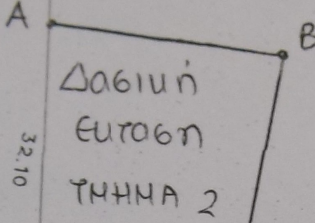 A
B
Δασική
έκταση
ΤΜΗΜΑ 2
32.10